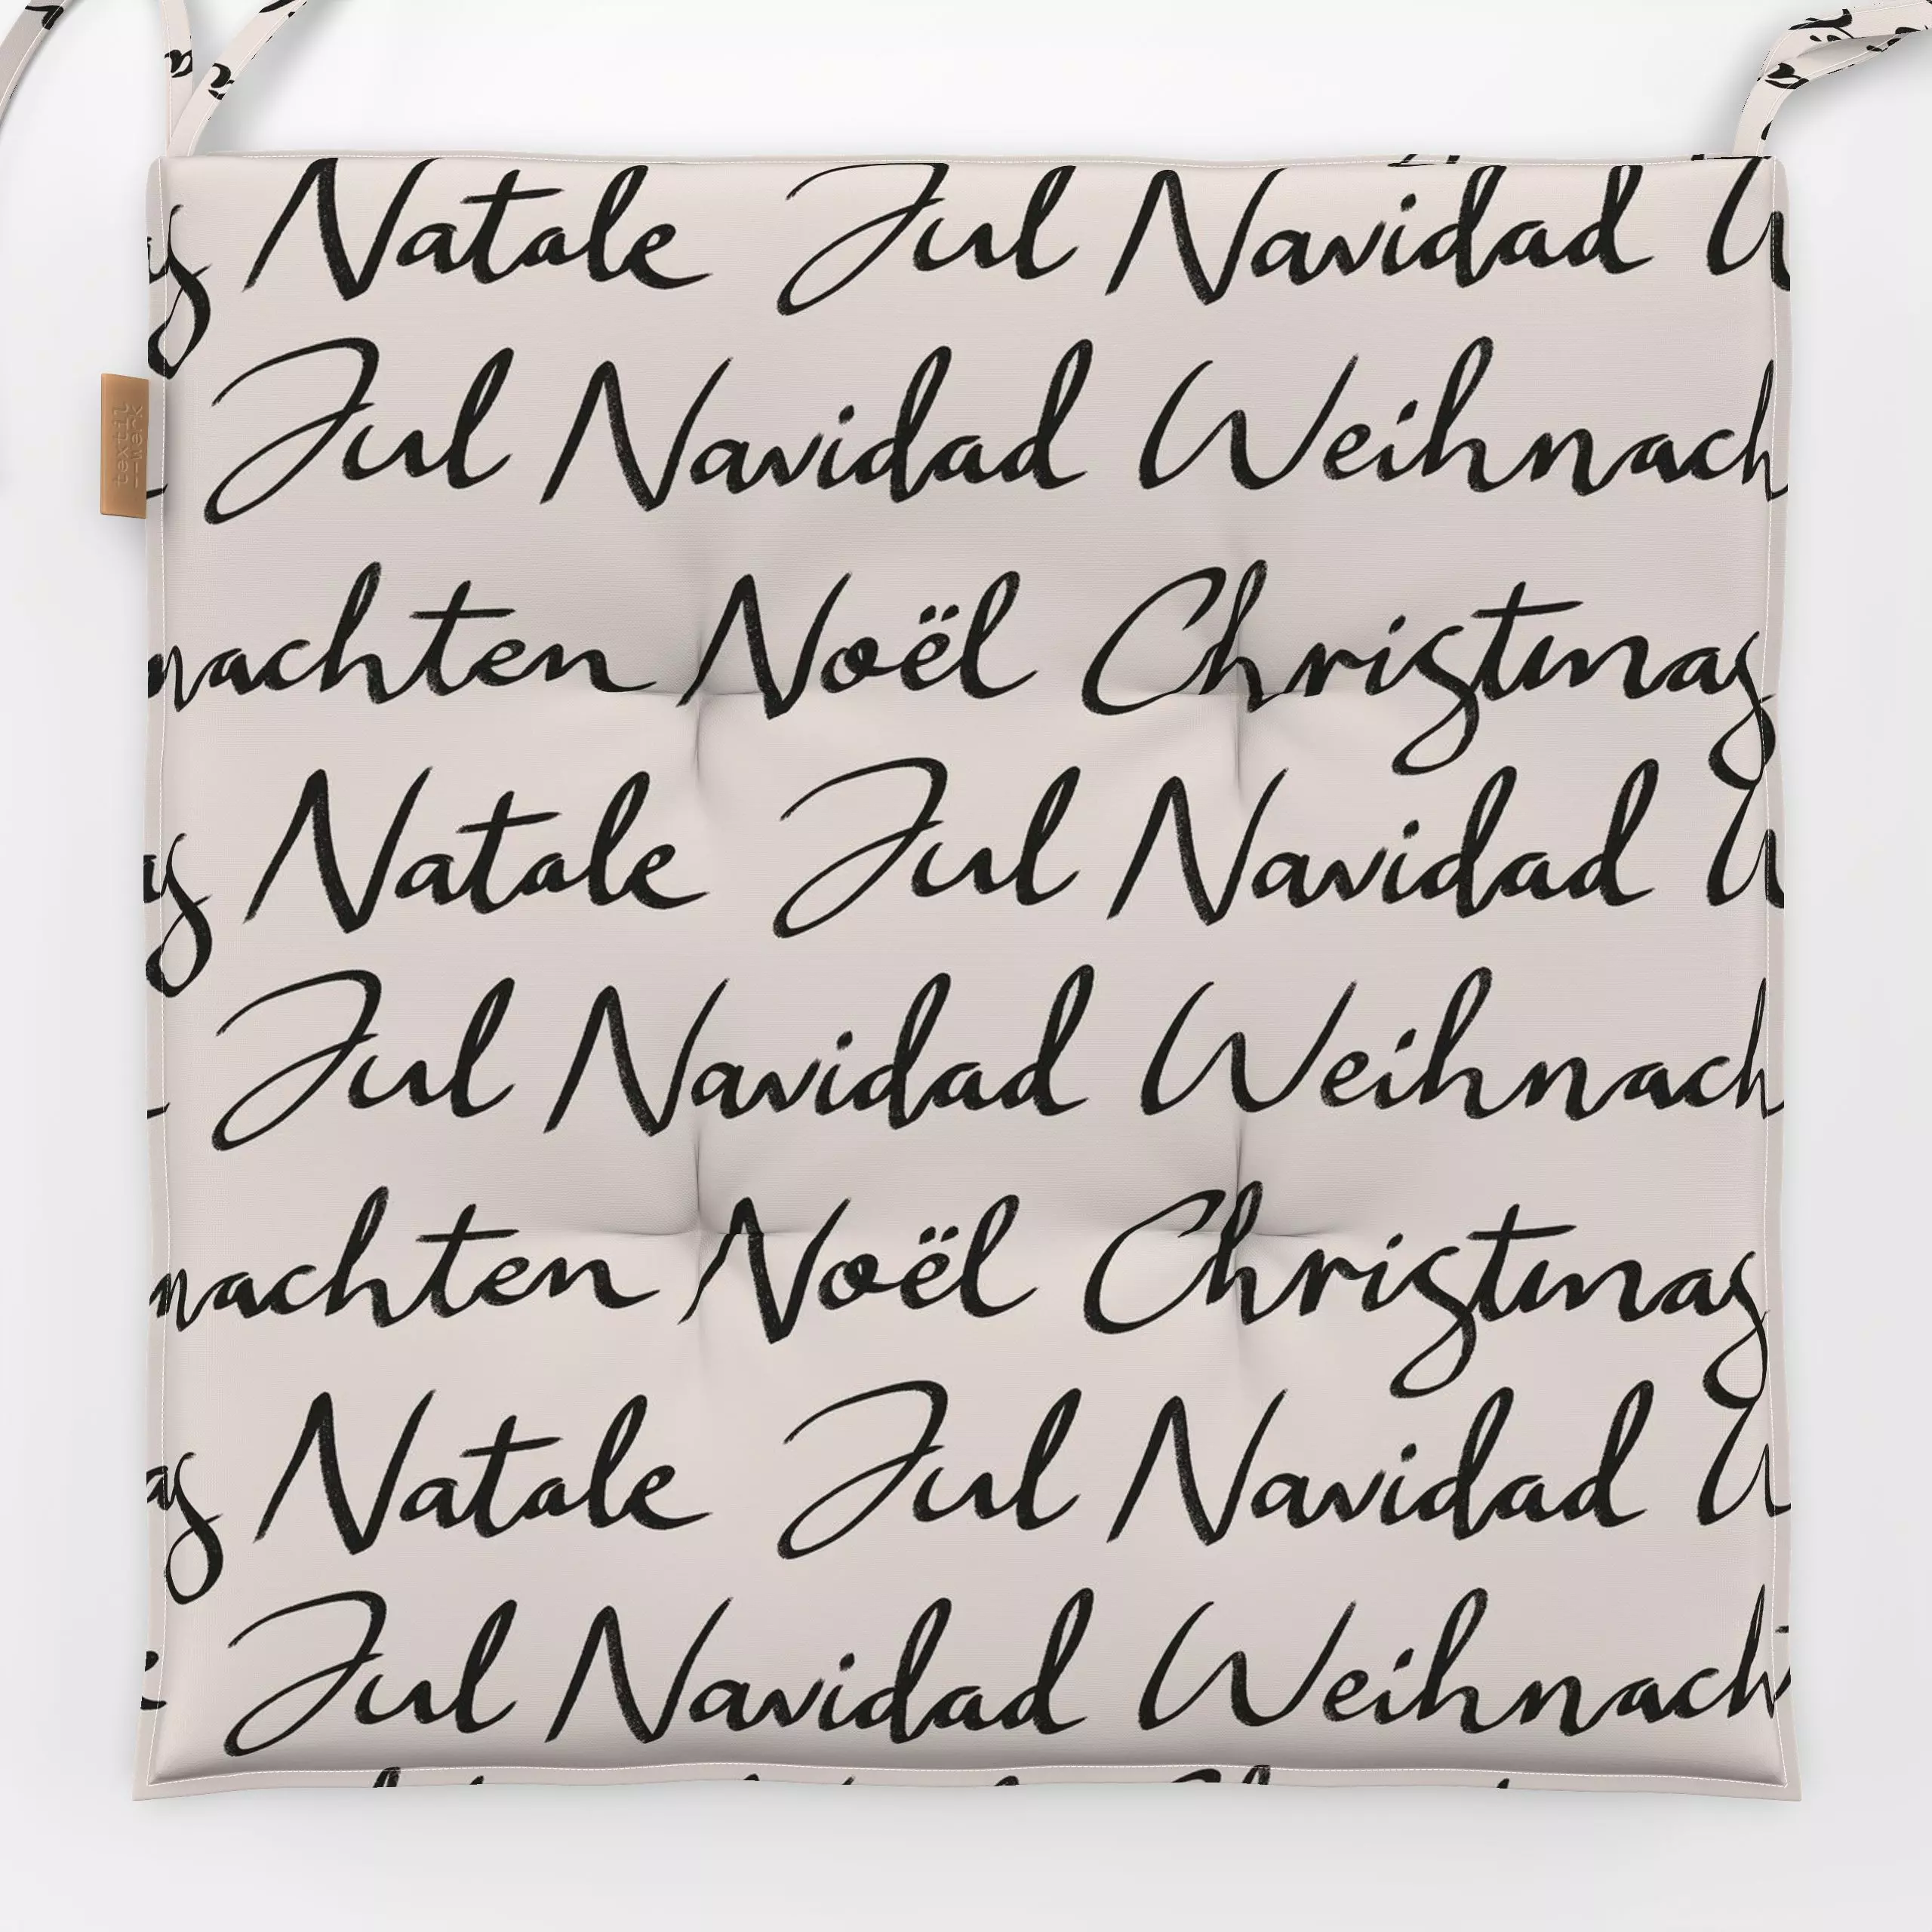 Natale Jul Navidad
Jul Navidad Weihnach
nachten Noël Christmas
Natale Jul Navidad
textil
—werk
Jul Navidad Weihnach
nachten Noël Christmas
Natale Jul Navidad
Jul Navidad Weihnach